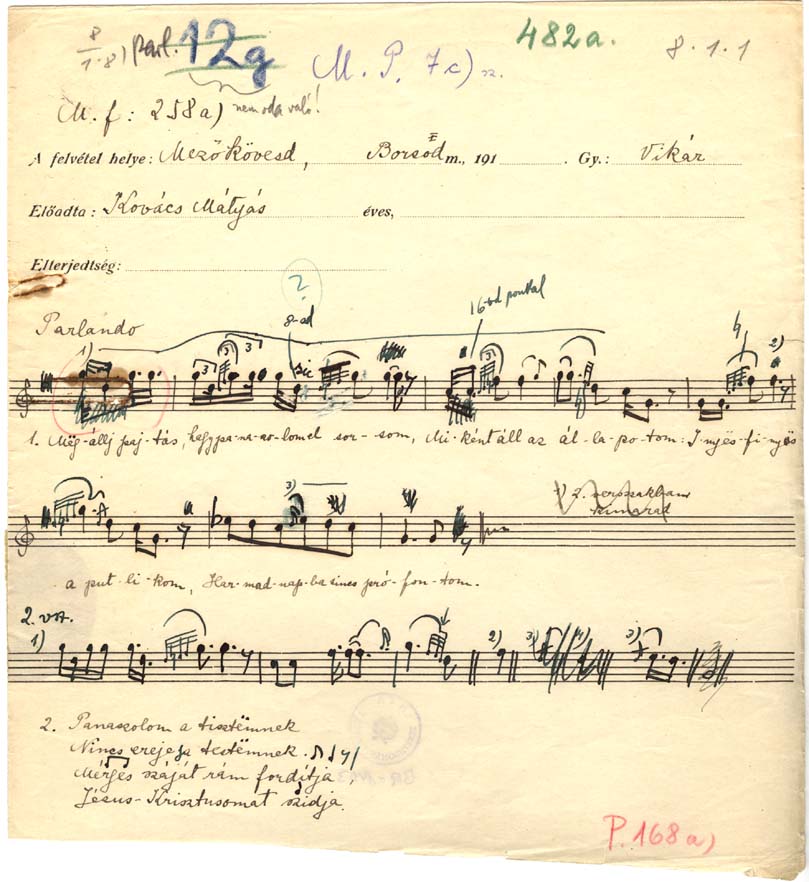 8
1·8) parl. 12g
M. P. 7c) sz.
482a.
8.1.1
M. f: 258a) nem oda való!
A felvétel helye: Mezőkövesd, Borsod m., 191 . Gy.: Vikár
Előadta: Kovács Mátyás éves,
Elterjedtség:
?
8-ad
16-od ponttal
Parlando
1)
3
3
3
sic
3
2)
1. Mëg-állj paj-tás, hagy pa-na-szo-lom el sor-som, Mi-ként áll az ál-la-po-tom: I-nyës-fi-nyës
3)
1) 2. versszakban
kimarad
a put-li-kom, Har-mad-nap-ba sincs pró-fon-tom.
2. vsz.
1)
2)
3)
3)
2. Panaszolom a tisztëmnek
Nincs ereje a testëmnek.
Mérges száját rám fordítja,
Jézus-Krisztusomat szidja.
P. 168a)